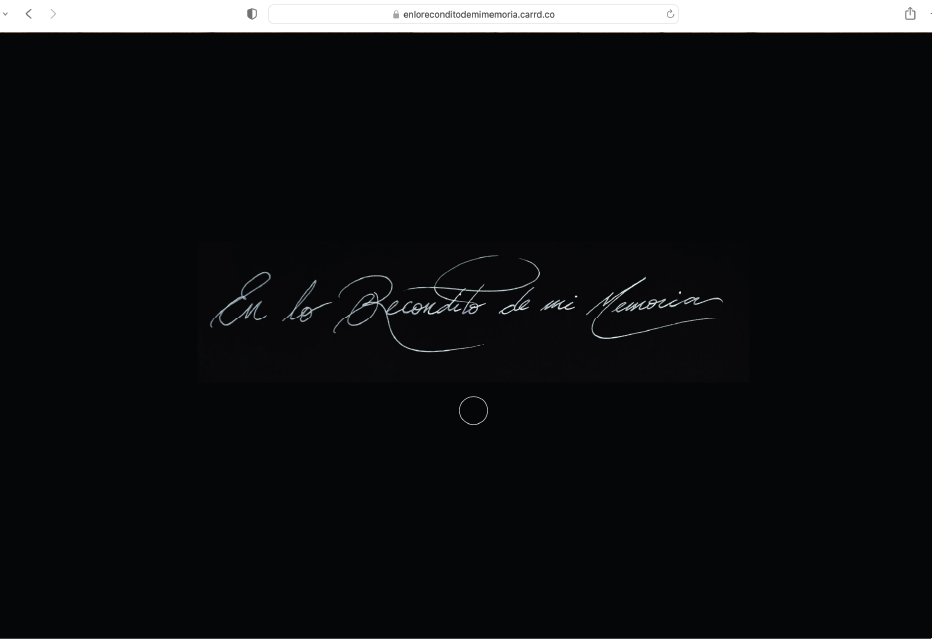 enloreconditodemimemoria.carrd.co
En lo Recondito de mi Memoria